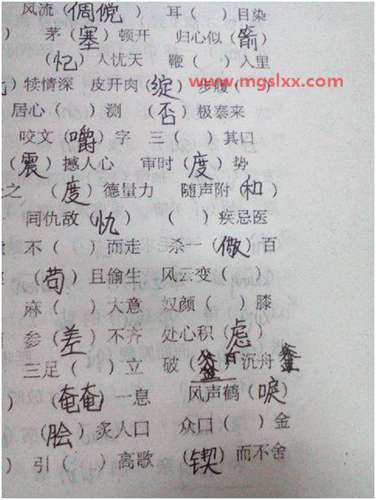 风流（倜傥） 耳（ ）目染
茅（塞）顿开 归心似（箭）
（杞）人忧天 鞭（ ）入里
www.mgslxx.com
犊情深 皮开肉（绽） 步履（
居心（ ）测 （否）极泰来
咬文（嚼）字 三（ ）其口
（震）撼人心 审时（度）势
之 （度）德量力 随声附（和）
同仇敌（忾） （ ）疾忌医
不（ ）而走 杀一（儆）百
（苟）且偷生 风云变（ ）
麻（ ）大意 奴颜（ ）膝
参（差）不齐 处心积（虑）
三足（ ）立 破（釜）沉舟 釜
）（奄奄）一息 风声鹤（唳）
（脍）炙人口 众口（ ）金
） 引（ ）高歌 （锲）而不舍